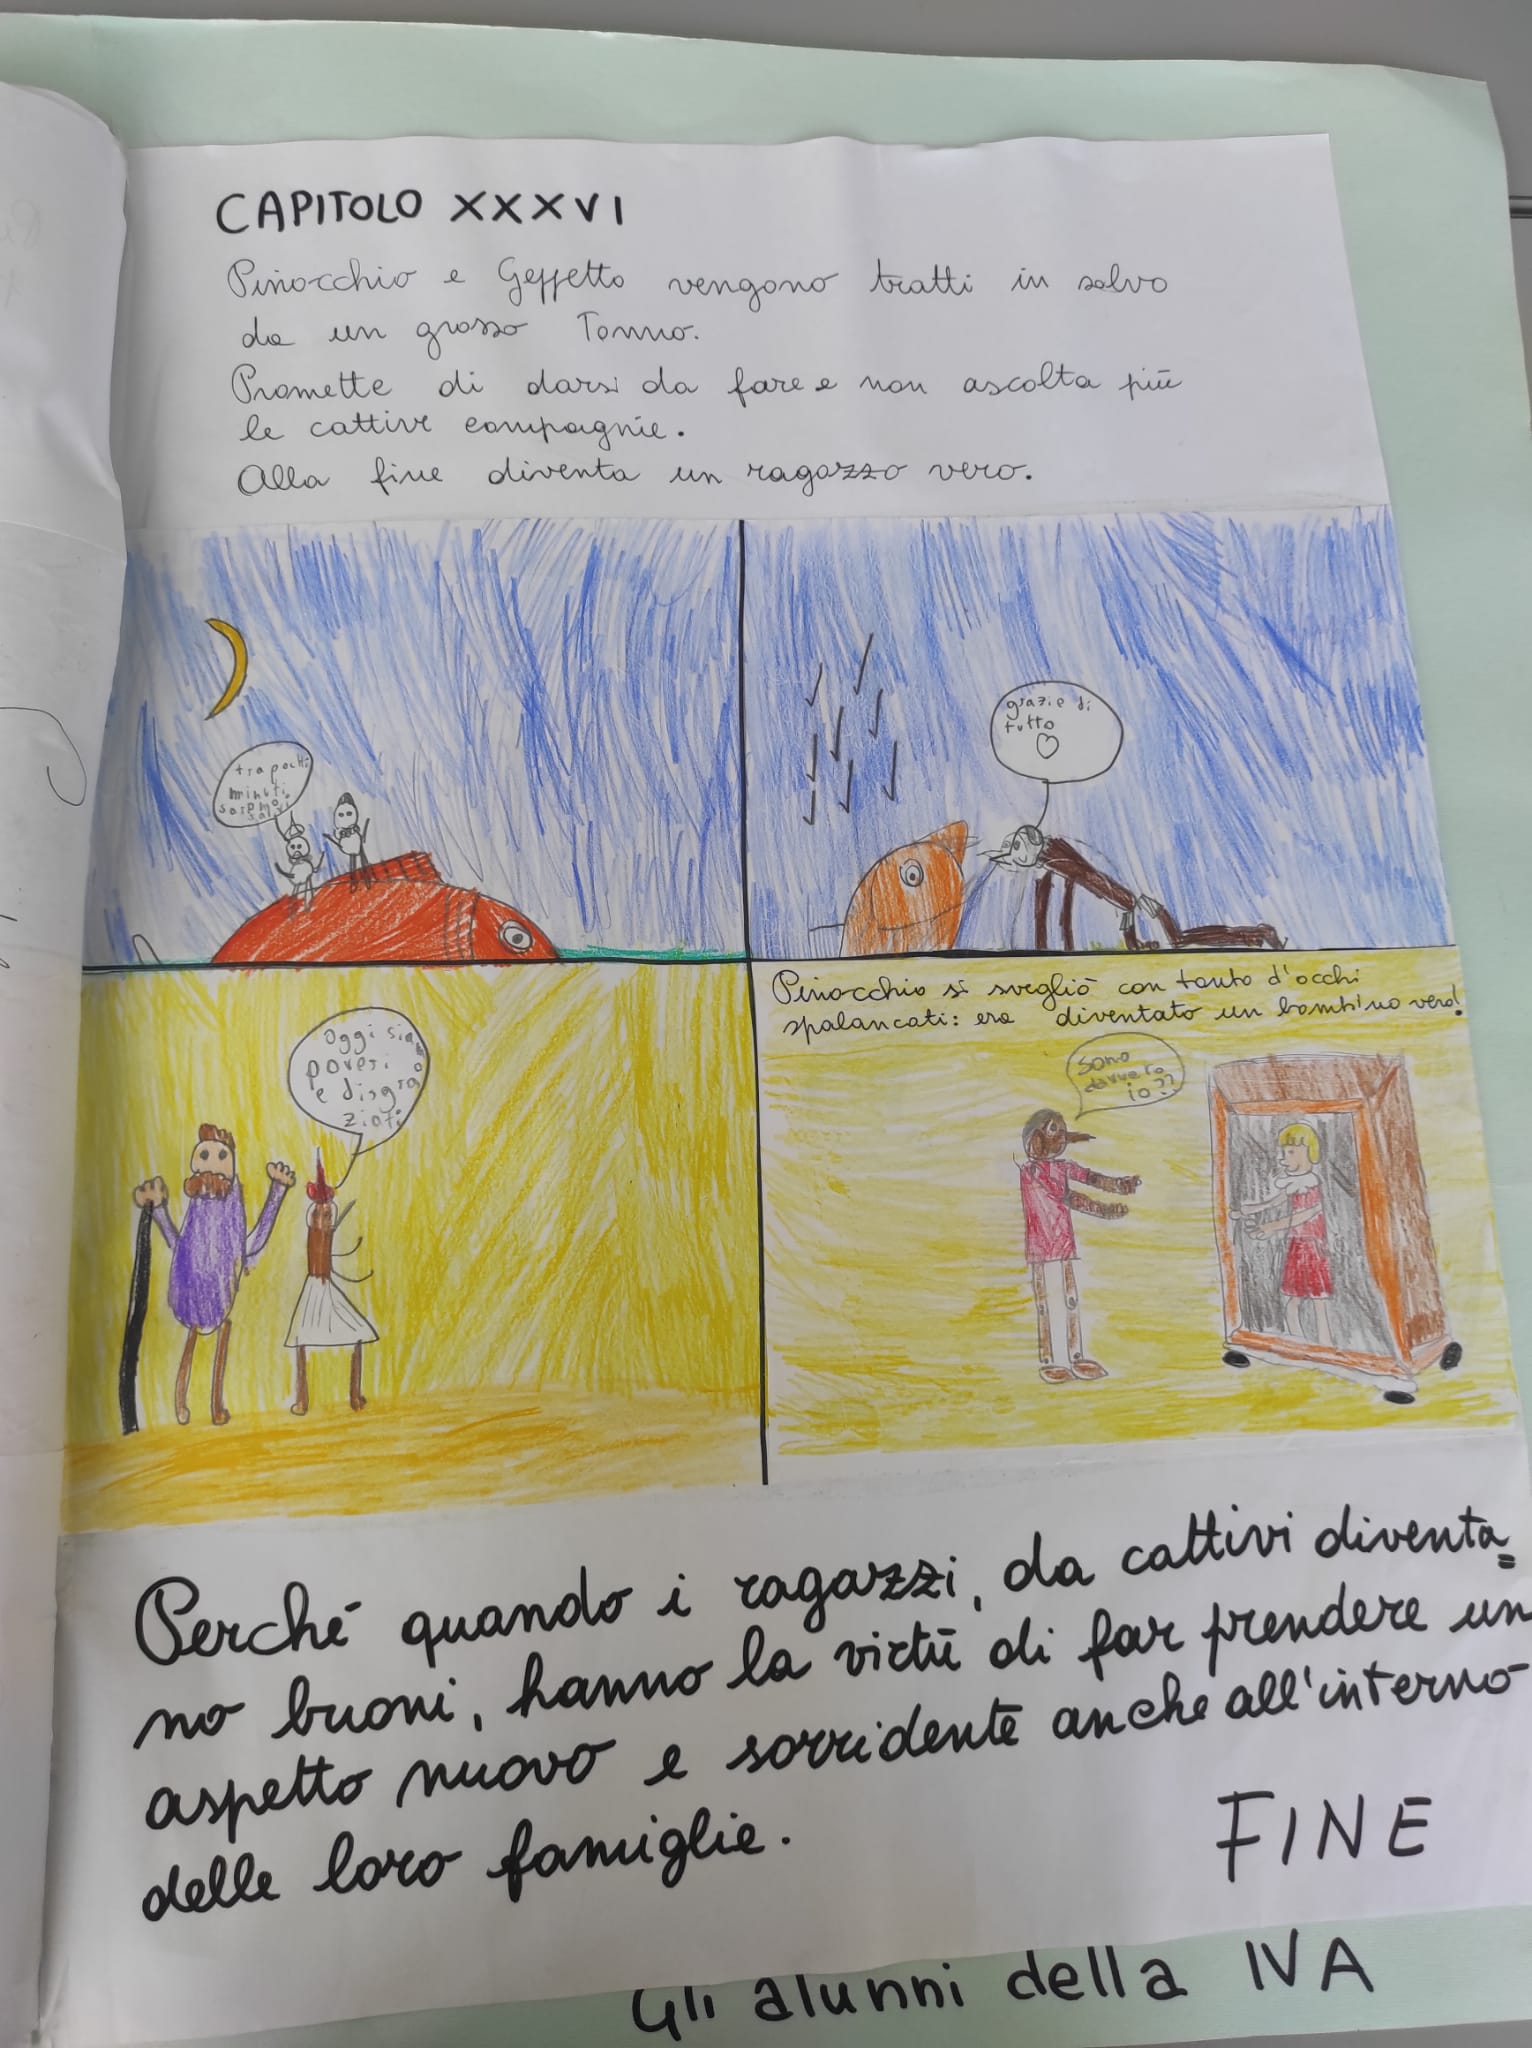 CAPITOLO XXXVI
Pinocchio e Geppetto vengono tratti in salvo
da un grosso Tonno.
Promette di darsi da fare e non ascolta più
le cattive compagnie.
Alla fine diventa un ragazzo vero.
tra pochi
minuti
saremo
salvi
grazie di
tutto
oggi siamo
poveri
e disgra
ziati
Pinocchio si svegliò con tanto d'occhi
spalancati: era diventato un bambino vero!
Sono
davvero
io??
Perché quando i ragazzi, da cattivi diventa=
no buoni, hanno la virtù di far prendere un
aspetto nuovo e sorridente anche all'interno
delle loro famiglie.
FINE
Gli alunni della IVA